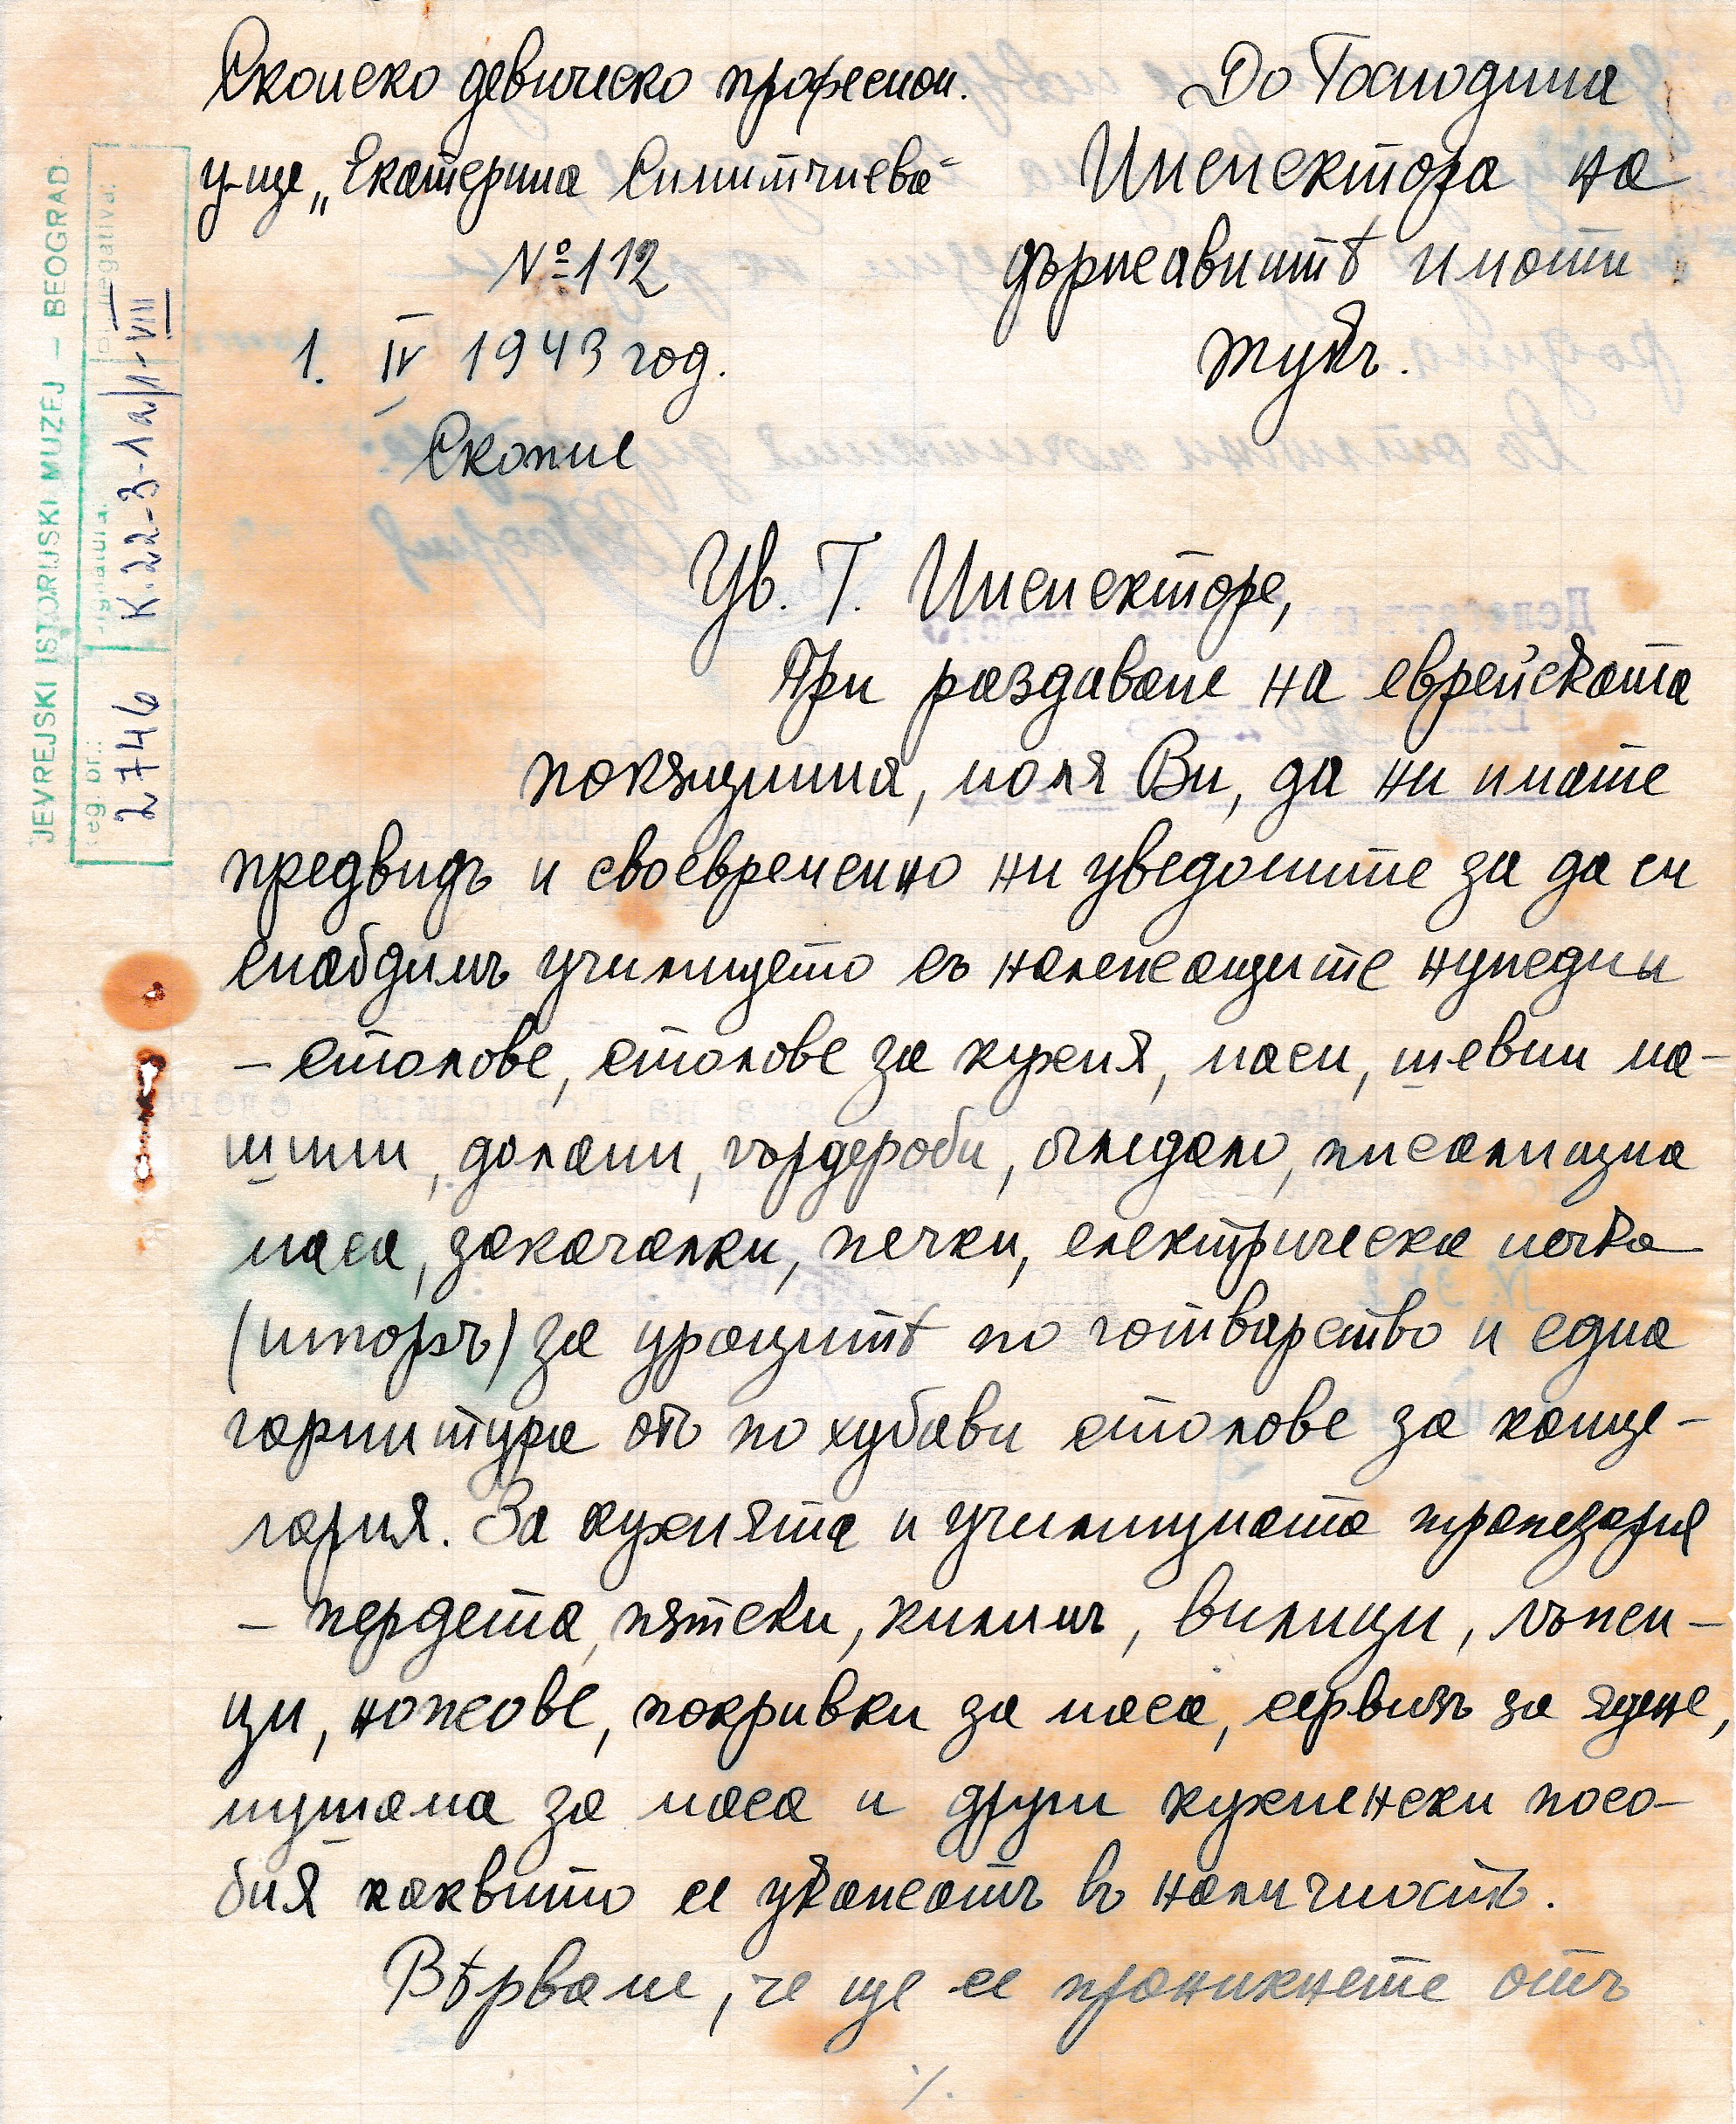 Скопско девическо професион.
у-ще „Екатерина Симитчиева"
№ 112
1. IV 1943 год.
Скопие
До Господина
Инспектора на
държавнитѣ имоти
тукъ.
Ув. Г. Инспекторе,
При раздаване на еврейската
покъщнина, моля Ви, да ни имате
предвидъ и своевременно ни уведомите за да си
снабдимъ училището съ належащите нужди
– столове, столове за кухня, маси, шевни ма-
шини, долапи, гърдероби, огледало, писалищна
маса, закачалки, печки, електрическа печка
за уроцитѣ по готварство и една
гарнитура отъ по хубави столове за канце-
лария. За кухнята и училищната трапезария
– пердета, пятеки, килимъ, вилици, лъжи-
ци, ножове, покривки за маса, сервизъ за ядене,
мушама за маса и други кухненски посо-
бия каквито се укажатъ въ наличность.
Вѣрваме, че ще се проникнете отъ
./.
JEVREJSKI ISTORIJSKI MUZEJ – BEOGRAD
reg. br.:
2746
signatura:
K.22-3-1a/1-VIII
br. negativa: